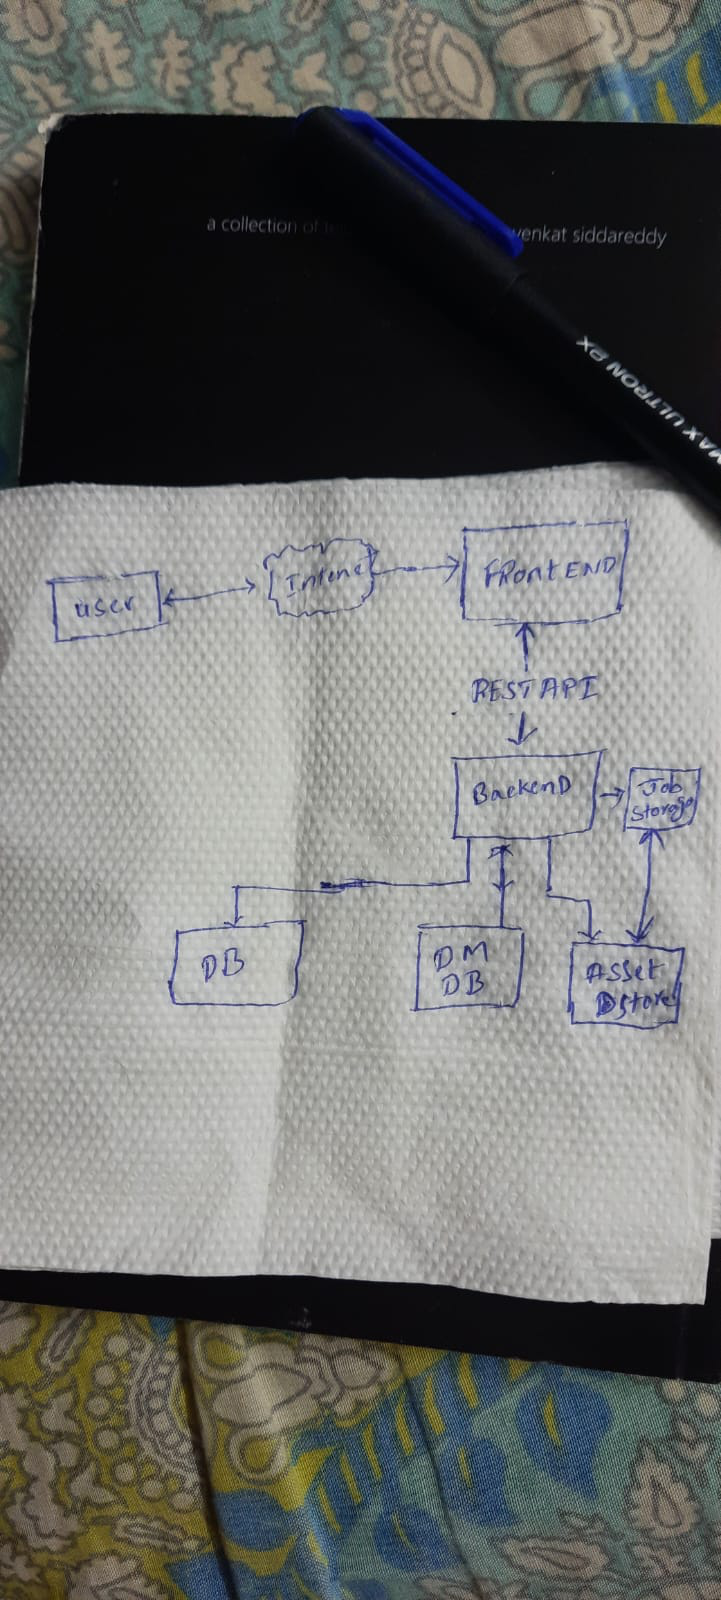 a collection of
venkat siddareddy
MAX ULTRON 2X
user
FRONT END
REST API
BackenD
Job
Storage
DB
DM
DB
Asset
Store